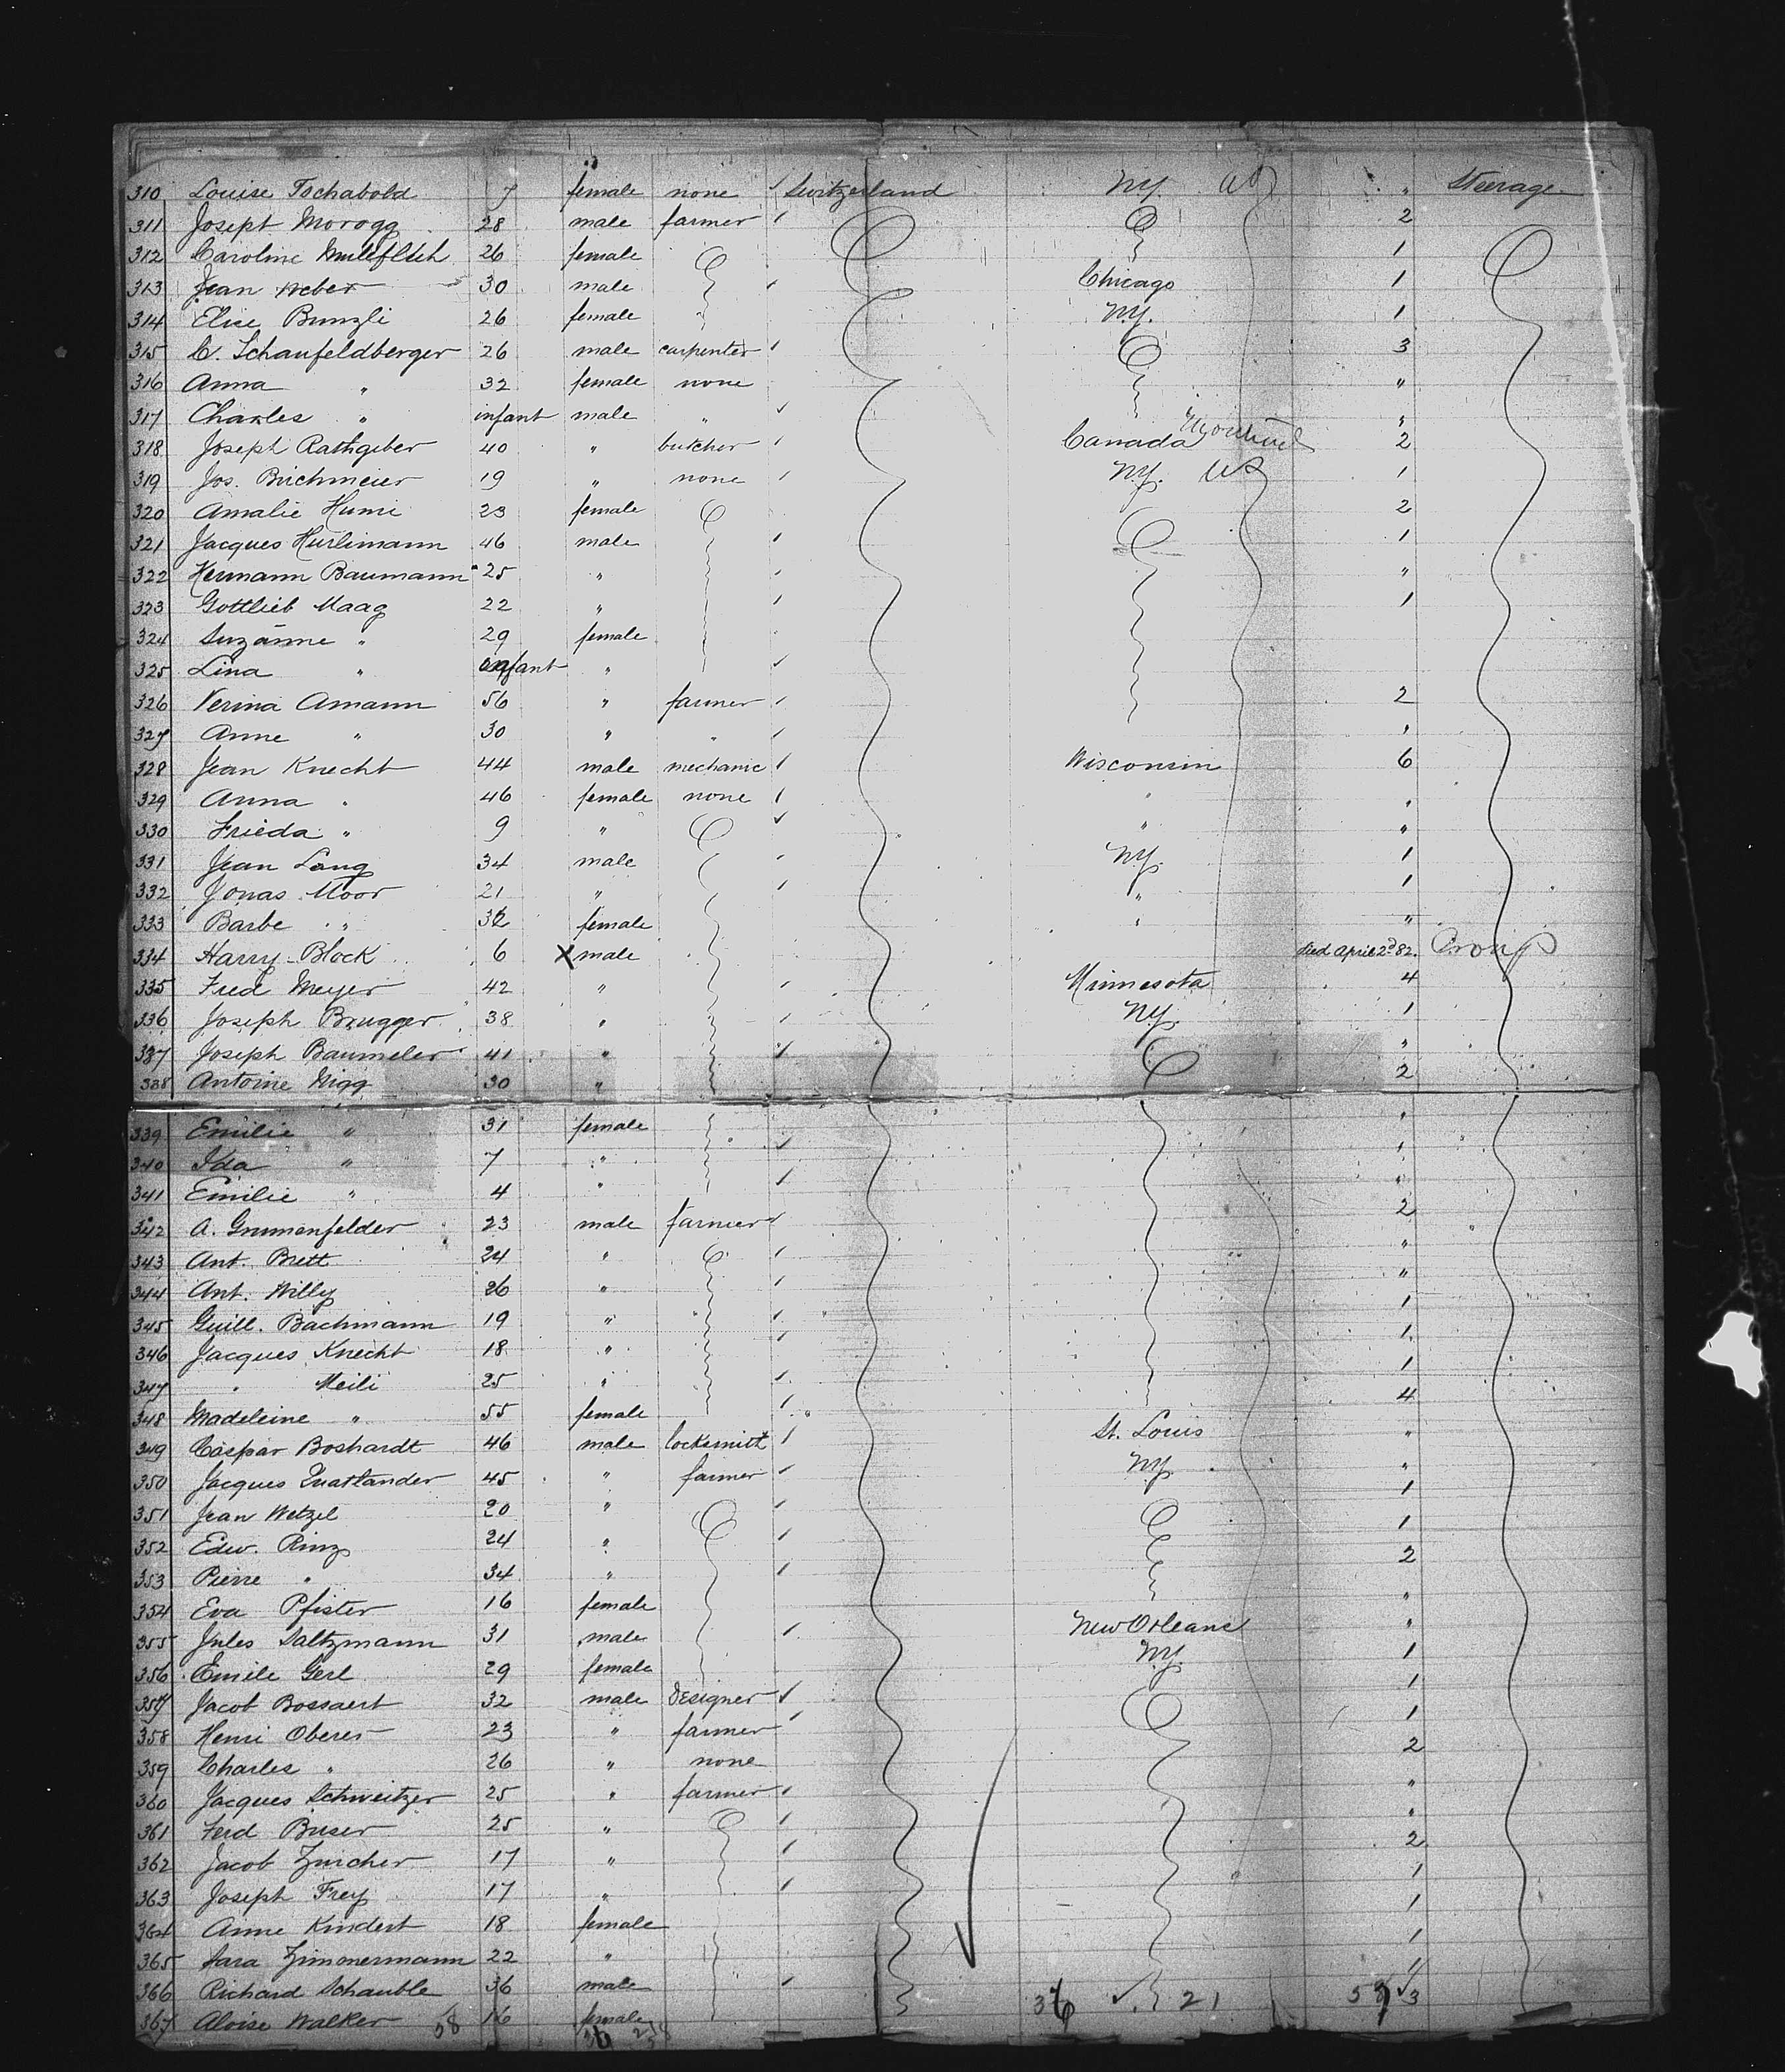 310 Louise Tschabold 7 female none ✓ Switzerland NY. US " Steerage
311 Joseph Morogg 28 male farmer ✓ 2
312 Caroline 26 female 1
313 Jean Weber 30 male ✓ Chicago 1
314 Elise Bunzli 26 female N.Y. 1
315 C. Schaufeldberger 26 male carpenter ✓ 3
316 Anna " 32 female none "
317 Charles " infant male " ✓ "
318 Joseph Rathgeber 40 " butcher ✓ Canada Montreal 2
319 Jos. Birchmeier 19 " none ✓ NY. US 1
320 Amalie Humi 23 female 2
321 Jacques Hurlimann 46 male ✓ 1
322 Hermann Baumann 25 " ✓ "
323 Gottlieb Maag 22 " ✓ 1
324 Suzanne " 29 female
325 Lina " infant " ✓
326 Verina Amann 56 " farmer ✓ 2
327 Anne " 30 " " ✓ "
328 Jean Knecht 44 male mechanic ✓ Wisconsin 6
329 Anna " 46 female none ✓ " "
330 Frieda " 9 " ✓ " "
331 Jean Lang 34 male ✓ NY. 1
332 Jonas Moor 21 " ✓ " 1
333 Barbe " 32 female " "
334 Harry Block 6 X male died April 2d 82.
335 Fred Meyer 42 " ✓ Minnesota 4
336 Joseph Brugger 38 " ✓ NY. 1
337 Joseph Baumeler 41 " ✓ "
338 Antoine Nigg 30 " 2
339 Emilie " 31 female "
340 Ida " 7 " ✓ 1
341 Emilie " 4 " ✓ "
342 A. Grunenfelder 23 male farmer ✓ 2
343 Ant. Brett 24 " ✓ "
344 Ant. Willy 26 " ✓ "
345 Guill. Bachmann 19 " ✓ 1
346 Jacques Knecht 18 " ✓ 1
347 " Meili 25 " ✓ 1
348 Madeleine " 55 female ✓ 4
349 Caspar Boshardt 46 male locksmith ✓ St. Louis "
350 Jacques 45 " farmer ✓ NY. "
351 Jean Wetzel 20 " ✓ 1
352 Edw. Rinz 24 " ✓ 1
353 Pierre " 34 " ✓ 2
354 Eva Pfister 16 female "
355 Jules Saltzmann 31 male ✓ New Orleans "
356 Emile Gerl 29 female NY. 1
357 Jacob Bossaert 32 male designer ✓ 1
358 Henri Oberer 23 " farmer ✓ 1
359 Charles " 26 " none 2
360 Jacques Schweitzer 25 " farmer ✓ "
361 Ferd Buser 25 " ✓ "
362 Jacob Zurcher 17 " ✓ 2
363 Joseph Frey 17 " ✓ 1
364 Anne Kindert 18 female 1
365 Sara Zimmermann 22 " 1
366 Richard Schauble 36 male ✓ 21
367 Aloise Walker 16 female 3
58